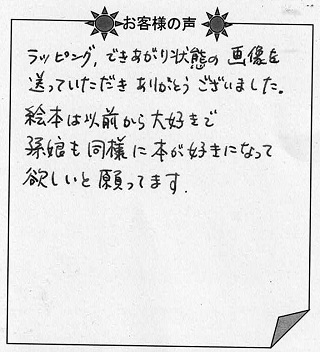 お客様の声
ラッピング,できあがり状態の画像を
送っていただきありがとうございました。
絵本は以前から大好きで
孫娘も同様に本が好きになって
欲しいと願ってます.